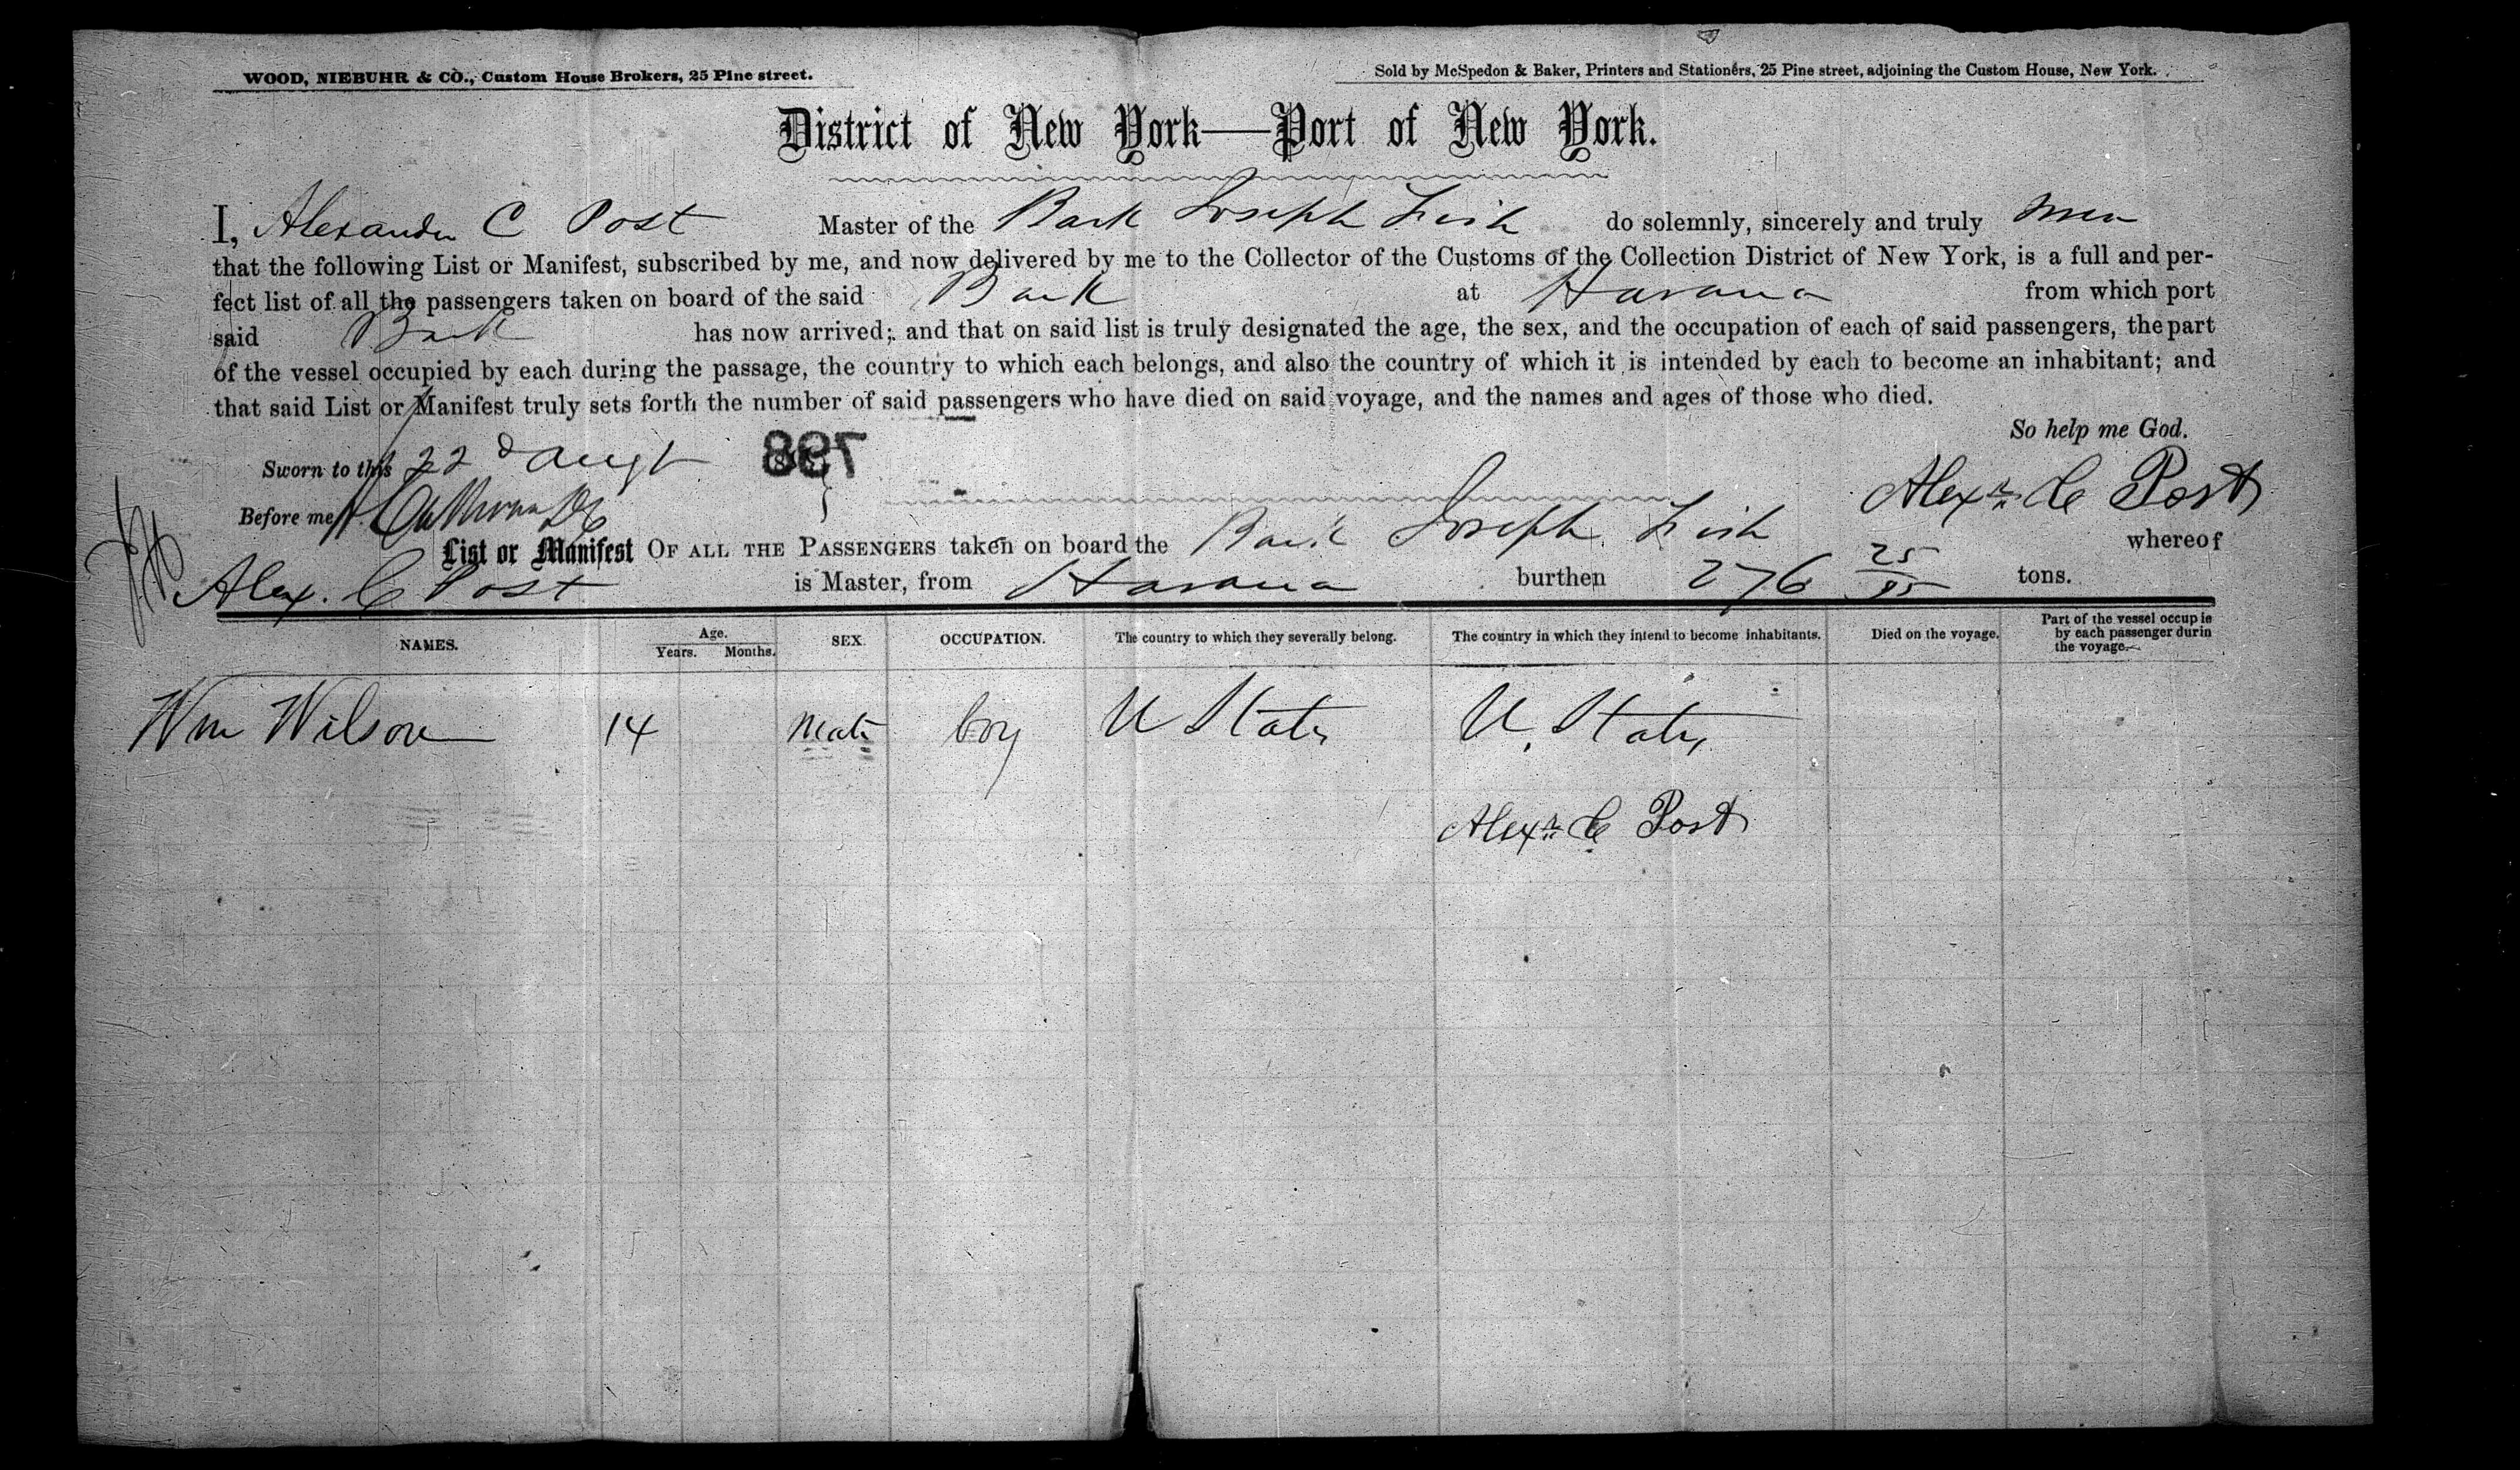 WOOD, NIEBUHR & CO., Custom House Brokers, 25 Pine street.
Sold by McSpedon & Baker, Printers and Stationers, 25 Pine street, adjoining the Custom House, New York.
District of New York—Port of New York.
I, Alexander C Post Master of the Bark Joseph Fish do solemnly, sincerely and truly
that the following List or Manifest, subscribed by me, and now delivered by me to the Collector of the Customs of the Collection District of New York, is a full and per-
fect list of all the passengers taken on board of the said Bark at Havana from which port
said Bark has now arrived; and that on said list is truly designated the age, the sex, and the occupation of each of said passengers, the part
of the vessel occupied by each during the passage, the country to which each belongs, and also the country of which it is intended by each to become an inhabitant; and
that said List or Manifest truly sets forth the number of said passengers who have died on said voyage, and the names and ages of those who died.
So help me God.
Sworn to this 22d Augt 798
Alexr C Post
Before me
List or Manifest OF ALL THE PASSENGERS taken on board the Bark Joseph Fish whereof
Alex. C Post is Master, from Havana burthen 276 25/95 tons.
NAMES. Age. Years. Months. SEX. OCCUPATION. The country to which they severally belong. The country in which they intend to become inhabitants. Died on the voyage. Part of the vessel occupie
by each passenger durin
the voyage.
Wm Wilson 14 Male boy U States U. States
Alexr C Post